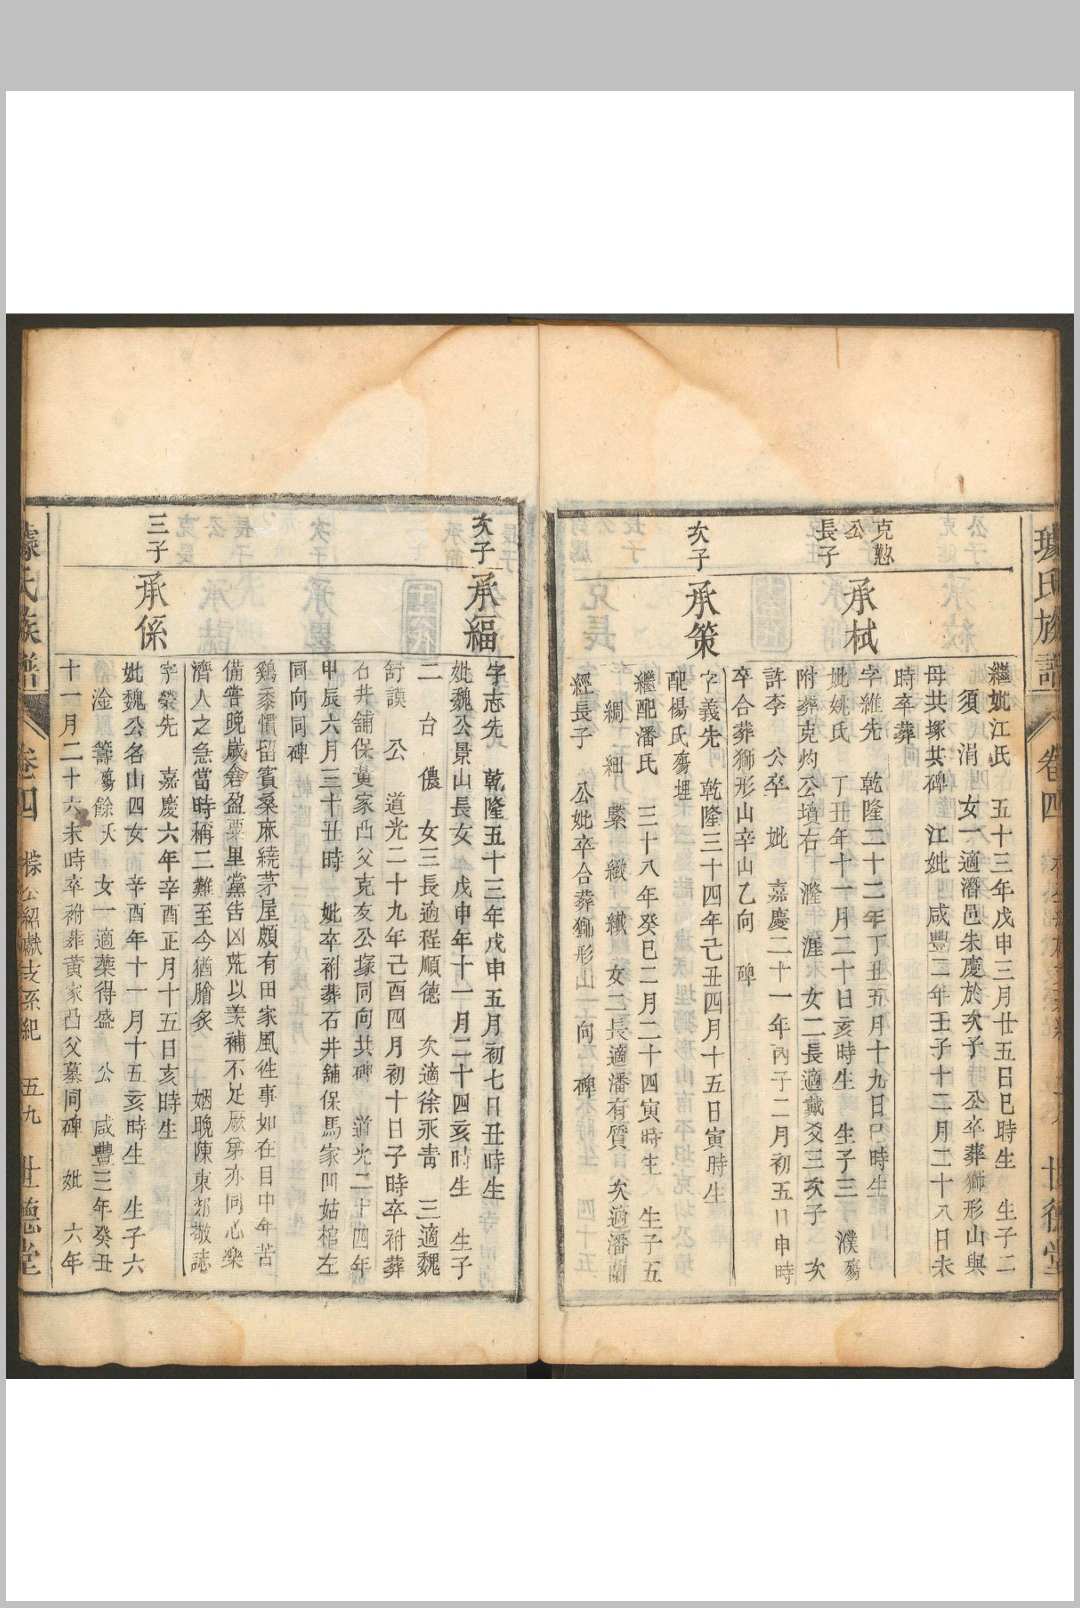 氏族譜 卷四
繼妣江氏 五十三年戊申三月廿五日巳時生 生子二
須 涓 女一適潛邑朱慶於次子 公卒葬獅形山與
母共塚共碑 江妣 咸豐二年壬子十二月二十八日未
時卒葬
克懃公長子 承栻
字維先 乾隆二十二年丁丑五月十九日巳時生
妣姚氏 丁丑年十一月二十日亥時生 生子三 濮殤
附葬克灼公墳右 溼 涯 女二長適戴爻三次子 次
許李 公卒 妣 嘉慶二十一年丙子二月初五日申時
卒合葬獅形山辛山乙向 碑
次子 承策
字義先 乾隆三十四年己丑四月十五日寅時生
配楊氏殤埋
繼配潘氏 三十八年癸巳二月二十四寅時生 生子五
綢 細 縏 緻 纖 女二長適潘有質 次適潘蘭
經長子 公妣卒合葬獅形山 向 碑
次子 承福
字志先 乾隆五十三年戊申五月初七日丑時生
妣魏公景山長女 戊申年十一月二十四亥時生 生子
二 台 儂 女三長適程順德 次適徐永青 三適魏
舒謨 公 道光二十九年己酉四月初十日子時卒祔葬
石井舖保黃家凸父克友公塚同向共碑 道光二十四年
甲辰六月三十丑時 妣卒祔葬石井舖保馬家凹姑棺左
同向同碑
鷄黍慣留賓桑麻繞茅屋頗有田家風徃事如在目中年苦
備嘗晚歲倉盈粟里黨告凶荒以羨補不足厥弟亦同心樂
濟人之急當時稱二難至今猶膾炙 姻晚陳東郊敬誌
三子 承係
字榮先 嘉慶六年辛酉正月十五日亥時生
妣魏公名山四女 辛酉年十一月十五亥時生 生子六
淦 籌殤餘夭 女一適藥得盛 公 咸豐三年癸丑
十一月二十六未時卒祔葬黃家凸父墓同碑 妣 六年
氏族譜 卷四 公紹 支系紀 五九 世德堂